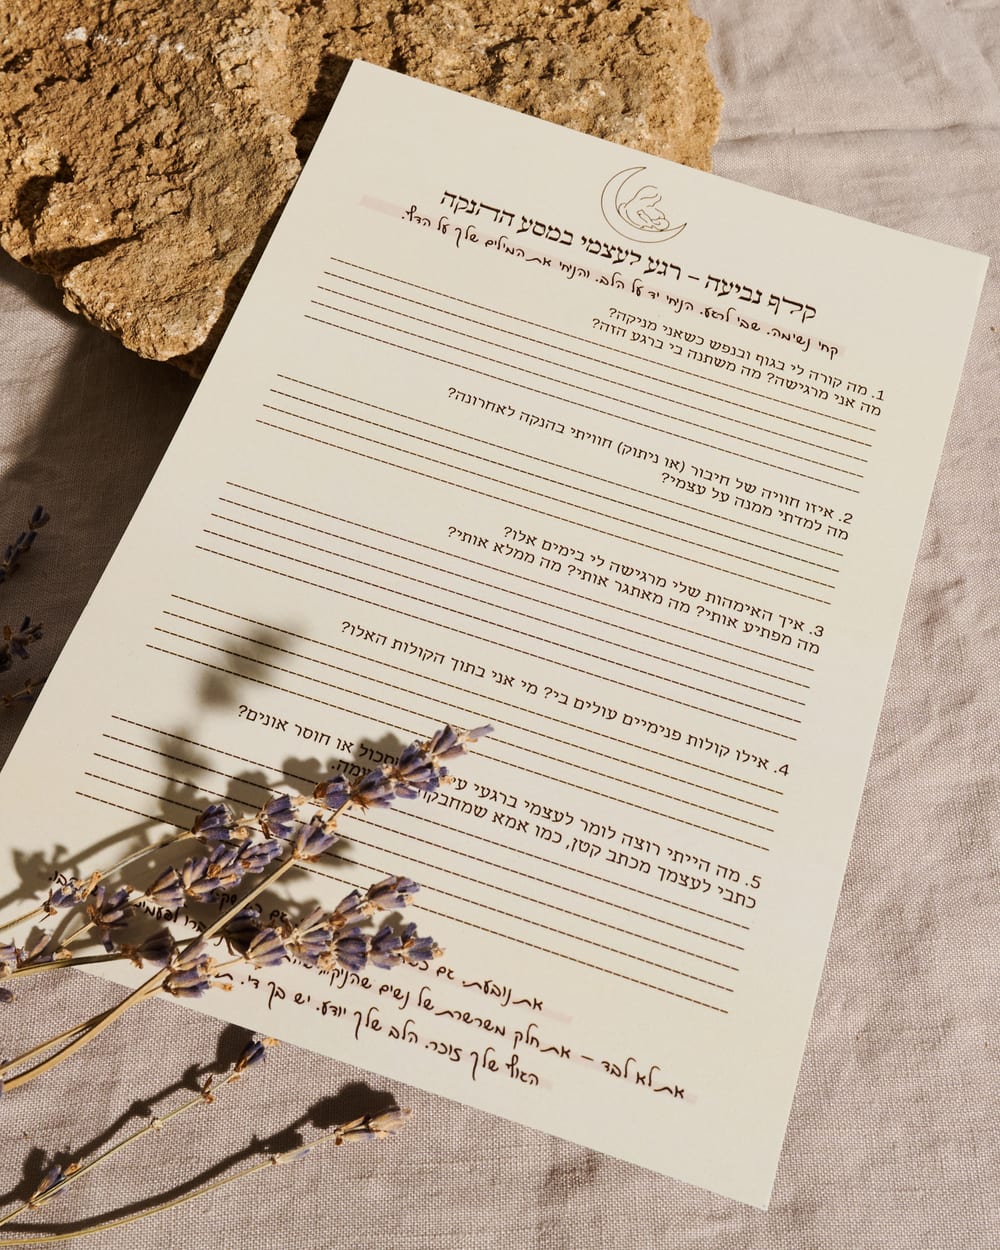 קלף נביעה – רגע לעצמי במסע ההנקה
קחי נשימה. שבי לרגע. הניחי יד על הלב. והניחי את המילים שלך על הדף.
1. מה קורה לי בגוף ובנפש כשאני מניקה?
מה אני מרגישה? מה משתנה בי ברגע הזה?
2. איזו חוויה של חיבור (או ניתוק) חוויתי בהנקה לאחרונה?
מה למדתי ממנה על עצמי?
3. איך האימהות שלי מרגישה לי בימים אלו?
מה מפתיע אותי? מה מאתגר אותי? מה ממלא אותי?
4. אילו קולות פנימיים עולים בי? מי אני בתוך הקולות האלו?
5. מה הייתי רוצה לומר לעצמי ברגעי או חוסר אונים?
כתבי לעצמך מכתב קטן, כמו אמא
את נובעת. גם
את לא לבד – את חלק משרשרת של נשים שהניקו
הגוף שלך זוכר. הלב שלך יודע. יש בך די.